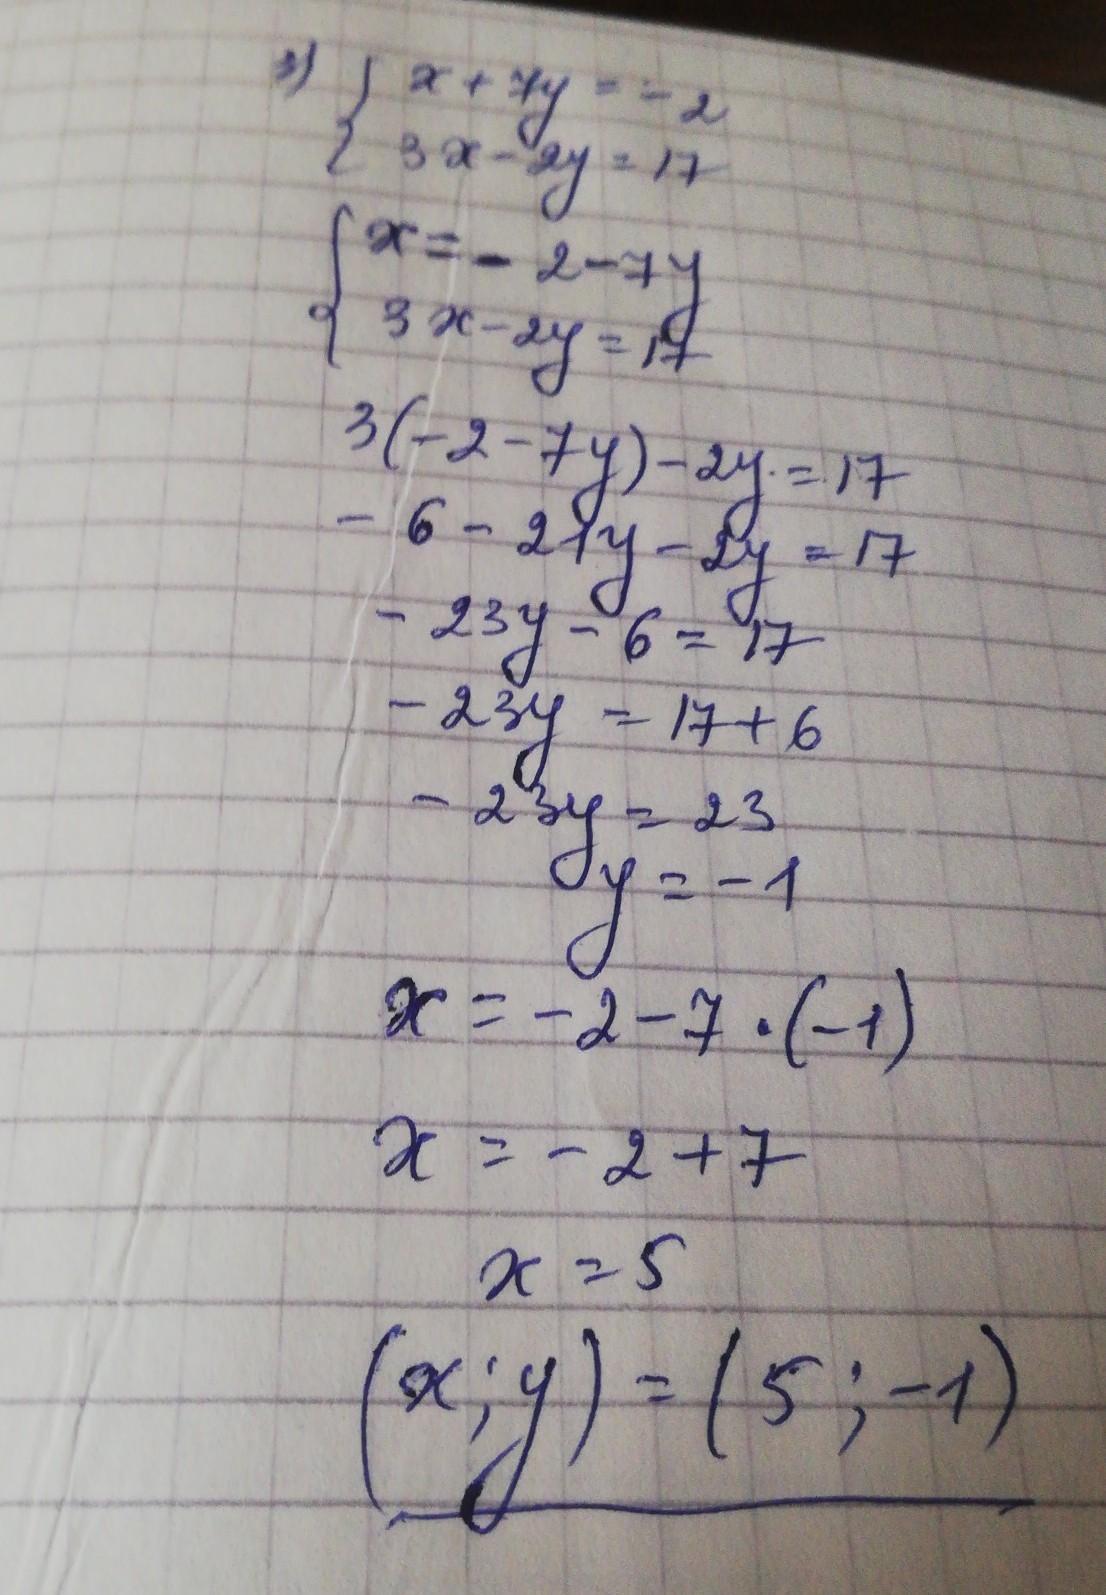 3) { x + 7y = -2
3x - 2y = 17
{ x = - 2 - 7y
3x - 2y = 17
3(-2 - 7y) - 2y = 17
- 6 - 21y - 2y = 17
- 23y - 6 = 17
- 23y = 17 + 6
- 23y = 23
y = -1
x = -2 - 7 · (-1)
x = -2 + 7
x = 5
(x; y) = (5; -1)